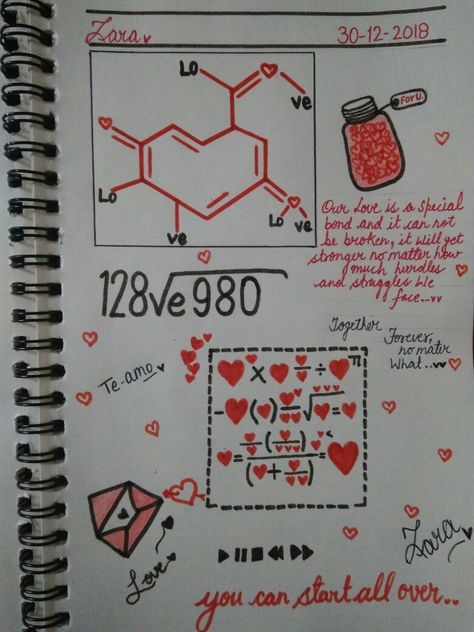 Zara
30-12-2018
Lo
ve
Lo
ve
Lo
ve
For U.
Our Love is a special
bond and it can not
be broken, it will get
stronger no matter how
much hurdles
and struggles We
face...
128√e980
Together
Forever,
no mater
What...
Te-amo
× ÷ π
- ( ) √ =
= ( ) =
( + )
Love
Zara
you can start all over..